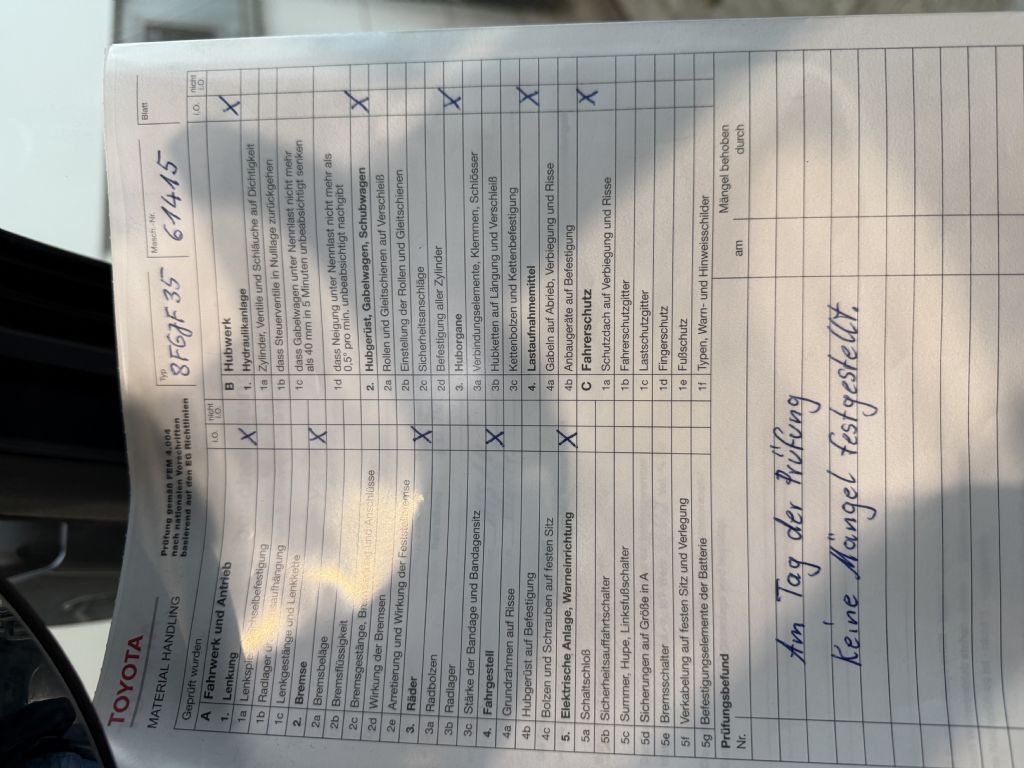 TOYOTA
MATERIAL HANDLING
Prüfung gemäß FEM 4.004
nach nationalen Vorschriften
basierend auf den EG Richtlinien
Typ
8FGJF35
Masch.-Nr.
61415
Blatt
Geprüft wurden
i.O. nicht i.O.
A Fahrwerk und Antrieb
1. Lenkung X
1a
1b Radlager
1c Lenkgestänge und Lenkkette
2. Bremse X
2a Bremsbeläge
2b Bremsflüssigkeit
2c Bremsgestänge, und Anschlüsse
2d Wirkung der Bremsen
2e Arretierung und Wirkung der Feststellbremse
3. Räder X
3a Radbolzen
3b Radlager
3c Stärke der Bandage und Bandagensitz
4. Fahrgestell X
4a Grundrahmen auf Risse
4b Hubgerüst auf Befestigung
4c Bolzen und Schrauben auf festen Sitz
5. Elektrische Anlage, Warneinrichtung X
5a Schaltschloß
5b Sicherheitsauffahrtschalter
5c Summer, Hupe, Linksfußschalter
5d Sicherungen auf Größe in A
5e Bremsschalter
5f Verkabelung auf festen Sitz und Verlegung
5g Befestigungselemente der Batterie
i.O. nicht i.O.
B Hubwerk X
1. Hydraulikanlage
1a Zylinder, Ventile und Schläuche auf Dichtigkeit
1b dass Steuerventile in Nulllage zurückgehen
1c dass Gabelwagen unter Nennlast nicht mehr
als 40 mm in 5 Minuten unbeabsichtigt senken
1d dass Neigung unter Nennlast nicht mehr als
0,5° pro min. unbeabsichtigt nachgibt
2. Hubgerüst, Gabelwagen, Schubwagen X
2a Rollen und Gleitschienen auf Verschleiß
2b Einstellung der Rollen und Gleitschienen
2c Sicherheitsanschläge
2d Befestigung aller Zylinder
3. Huborgane X
3a Verbindungselemente, Klemmen, Schlösser
3b Hubketten auf Längung und Verschleiß
3c Kettenbolzen und Kettenbefestigung
4. Lastaufnahmemittel X
4a Gabeln auf Abrieb, Verbiegung und Risse
4b Anbaugeräte auf Befestigung
C Fahrerschutz X
1a Schutzdach auf Verbiegung und Risse
1b Fahrerschutzgitter
1c Lastschutzgitter
1d Fingerschutz
1e Fußschutz
1f Typen, Warn- und Hinweisschilder
Prüfungsbefund
Nr.
Mängel behoben
am durch
Am Tag der Prüfung
Keine Mängel festgestellt.